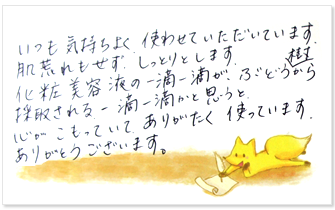 いつも気持ちよく使わせていただいています.
肌荒れもせず. しっとりとします.
化粧美容液の一滴一滴が、ぶどう樹から
採取される一滴一滴かと思うと、
心がこもっていて、ありがたく使っています.
ありがとうございます。